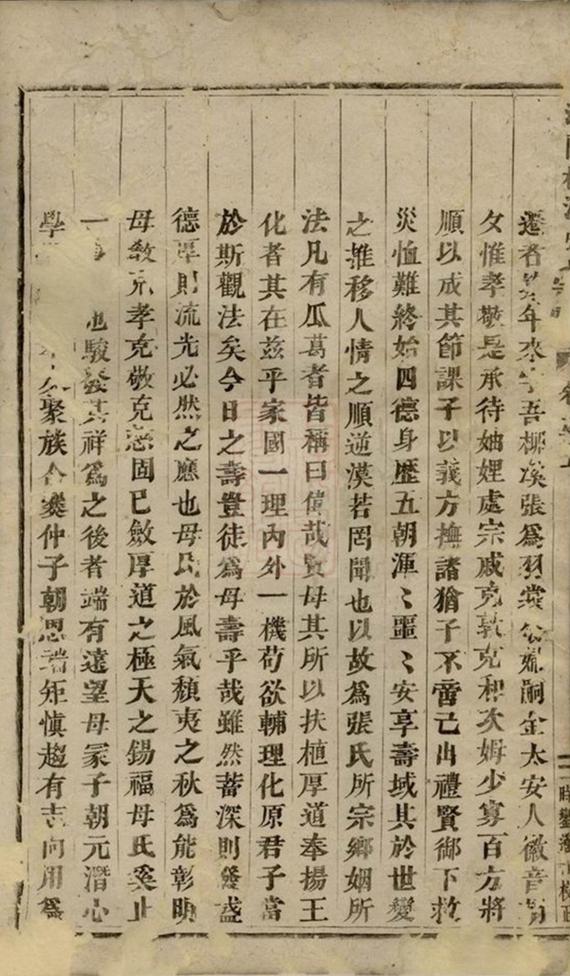 遷者昊年來字吾柳溪張為羽裳公嗣金太安人徽音
夕惟孝敬是承待妯娌處宗戚克敦克和次姆少寡百方將
順以成其節課子以義方撫諸猶子不啻己出禮賢御下救
災恤難終始四德身歷五朝渾〻噩〻安享壽域其於世變
之推移人情之順逆漠若罔聞也以故為張氏所宗鄉姻所
法凡有瓜葛者皆稱曰偉哉賢母其所以扶植厚道奉揚王
化者其在茲乎家國一理內外一機苟欲輔理化原君子當
於斯觀法矣今日之壽豈徒為母壽乎哉雖然蓄深則發盛
德厚則流光必然之應也母氏於風氣頹夷之秋為能彰明
母教克孝克敬克慈固已斂厚道之極天之錫福母氏奚止
一 也駿發其祥為之後者端有遠望母冢子朝元潛心
學 聚族合爨仲子朝恩端矩慎趨有志向用為